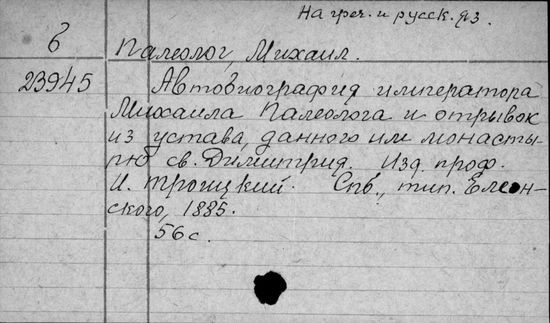 На греч. и русск. яз.
б Палеолог, Михаил.
23945 Автобиография императора
Михаила Палеолога и отрывок
из устава, данного им монасты-
рю св. Димитрия. Изд. проф.
И. Троицкий. Спб., тип. Елеон-
ского, 1885.
56 с.